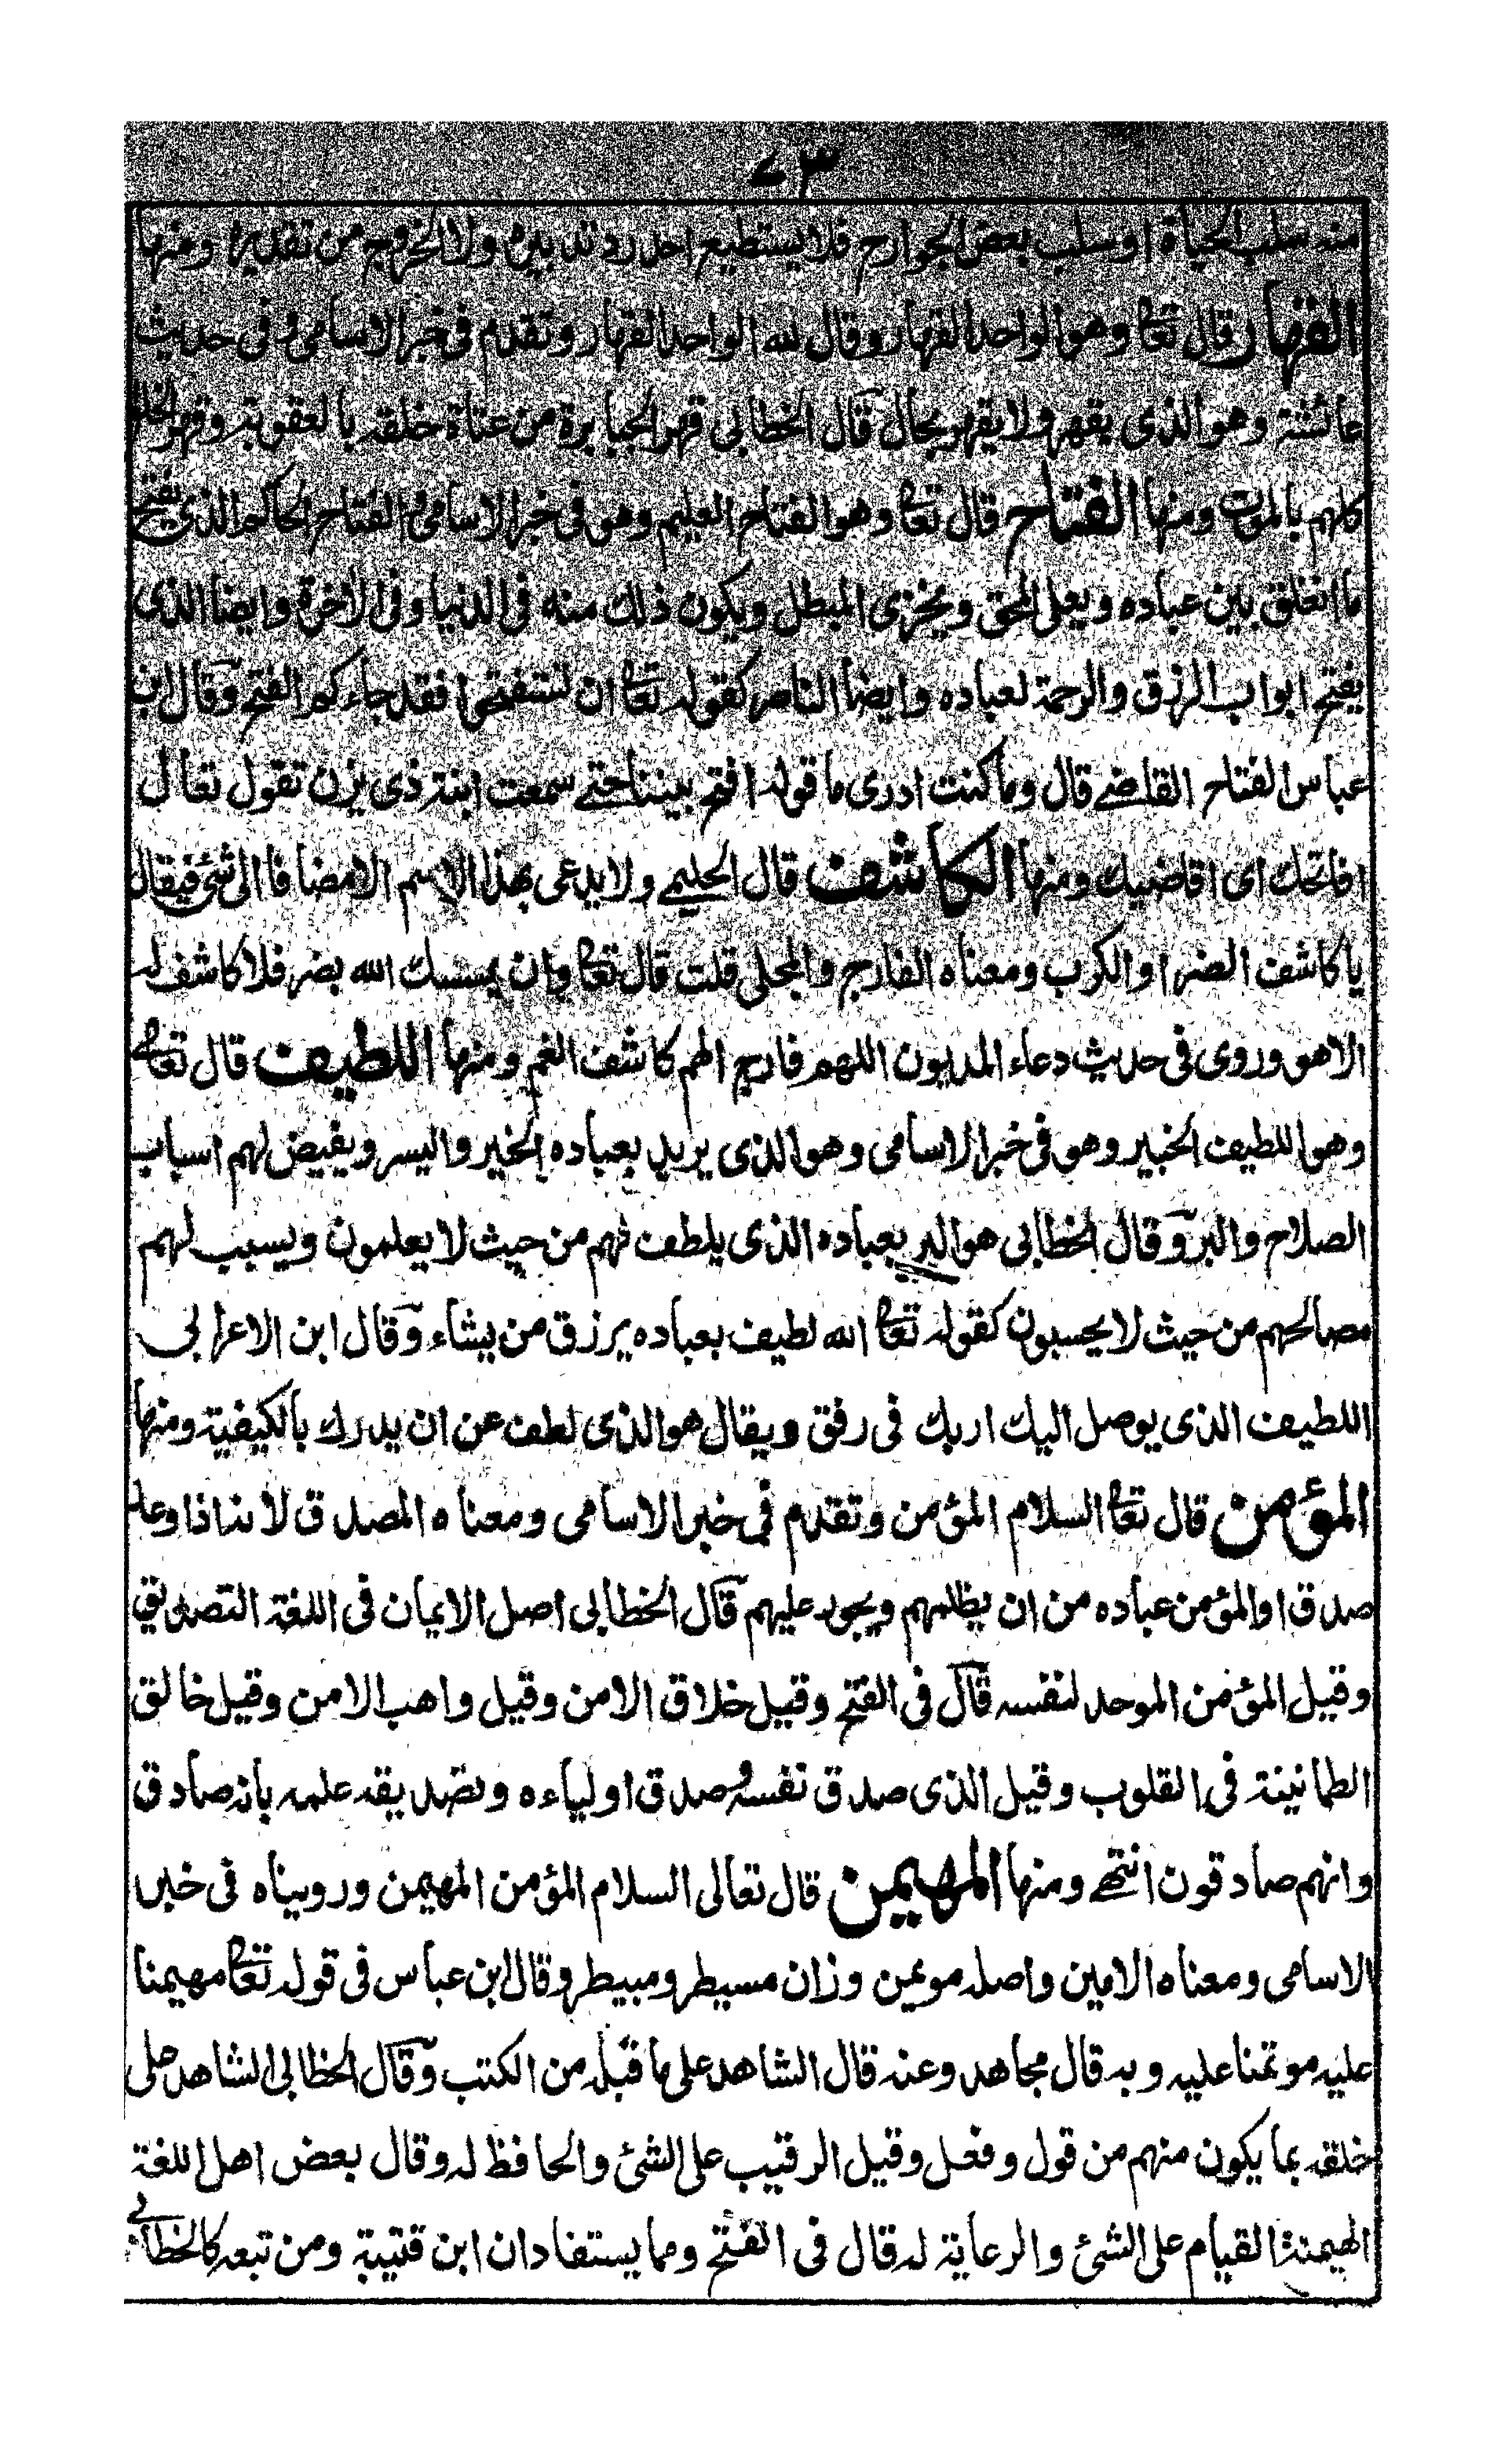 ٧٣
منه سلب الحياة او سلب بعض الجوارح فلا يستطيع احد رد تدبيره ولا الخروج من تقديره ومنها
القهار قال تعا وهو الواحد القهار وقال لله الواحد القهار وتقدم فى خبر الاسامى و فى حديث
عائشة وهو الذى يقهر ولا يقهر بحال قال الخطابى قهر الجبابرة من عتاة خلقه بالعقوبة وقهر الخلق
كلهم بالموت ومنها الفتاح قال تعا وهو الفتاح العليم وهو فى خبر الاسامى و الفتاح الحاكم الذى يفتح
ما انغلق بين عباده ويعلى المحق ويخزى المبطل ويكون ذلك منه فى الدنيا وفى الاخرة وايضا الذى
يفتح ابواب الرزق والرحمة لعباده وايضا الناصر كقوله تعا ان تستفتحوا فقد جاءكم الفتح وقال ابن
عباس الفتاح القاضے قال وما كنت ادرى ما قوله افتح بيننا حتے سمعت ابنة ذى يزن تقول تعال
افاتحك اى اقاضيك ومنها الكاشف قال الحليمے ولا يدعى بهذا الاسم الا مضافا الى شئ فيقال
يا كاشف الضر او الكرب ومعناه الفارج والمجلى قلت قال تعا وان يمسسك الله بضر فلا كاشف له
الا هو وروى فى حديث دعاء المديون اللهم فارج الهم كاشف الغم ومنها اللطيف قال تعالے
وهو اللطيف الخبير وهو فى خبر الاسامى وهو الذى يريد بعباده الخير واليسر ويفيض لهم اسباب
الصلاح والبر وقال الخطابى هو البر بعباده الذى يلطف لهم من حيث لا يعلمون ويسبب لهم
مصالحهم من حيث لا يحسبون كقوله تعا الله لطيف بعباده يرزق من يشاء وقال ابن الاعرابى
اللطيف الذى يوصل اليك اربك فى رفق ويقال هو الذى لطف عن ان يدرك بالكيفية ومنها
المؤمن قال تعا السلام المؤمن وتقدم فى خبر الاسامى ومعناه المصدق لانه اذا وعد
صدق او المؤمن عباده من ان يظلمهم ويجور عليهم قال الخطابى اصل الايمان فى اللغة التصديق
وقيل المؤمن الموحد لنفسه قال فى الفتح وقيل خلاق الامن وقيل واهب الامن وقيل خالق
الطمانينة فى القلوب وقيل الذى صدق نفسه وصدق اولياءه وتصديقه علمه بانه صادق
وانهم صادقون انتهے ومنها المهيمن قال تعالى السلام المؤمن المهيمن ورويناه فى خبر
الاسامى ومعناه الامين واصله مويمن وزان مسيطر ومبيطر وقال ابن عباس فى قوله تعا مهيمنا
عليه موتمنا عليه وبه قال مجاهد وعنه قال الشاهد على ما قبله من الكتب وقال الخطابى الشاهد على
خلقه بما يكون منهم من قول وفعل وقيل الرقيب على الشئ والحافظ له وقال بعض اهل اللغة
الهيمنة القيام على الشئ والرعاية له قال فى الفتح ومما يستفاد ان ابن قتيبة ومن تبعه كالخطابى